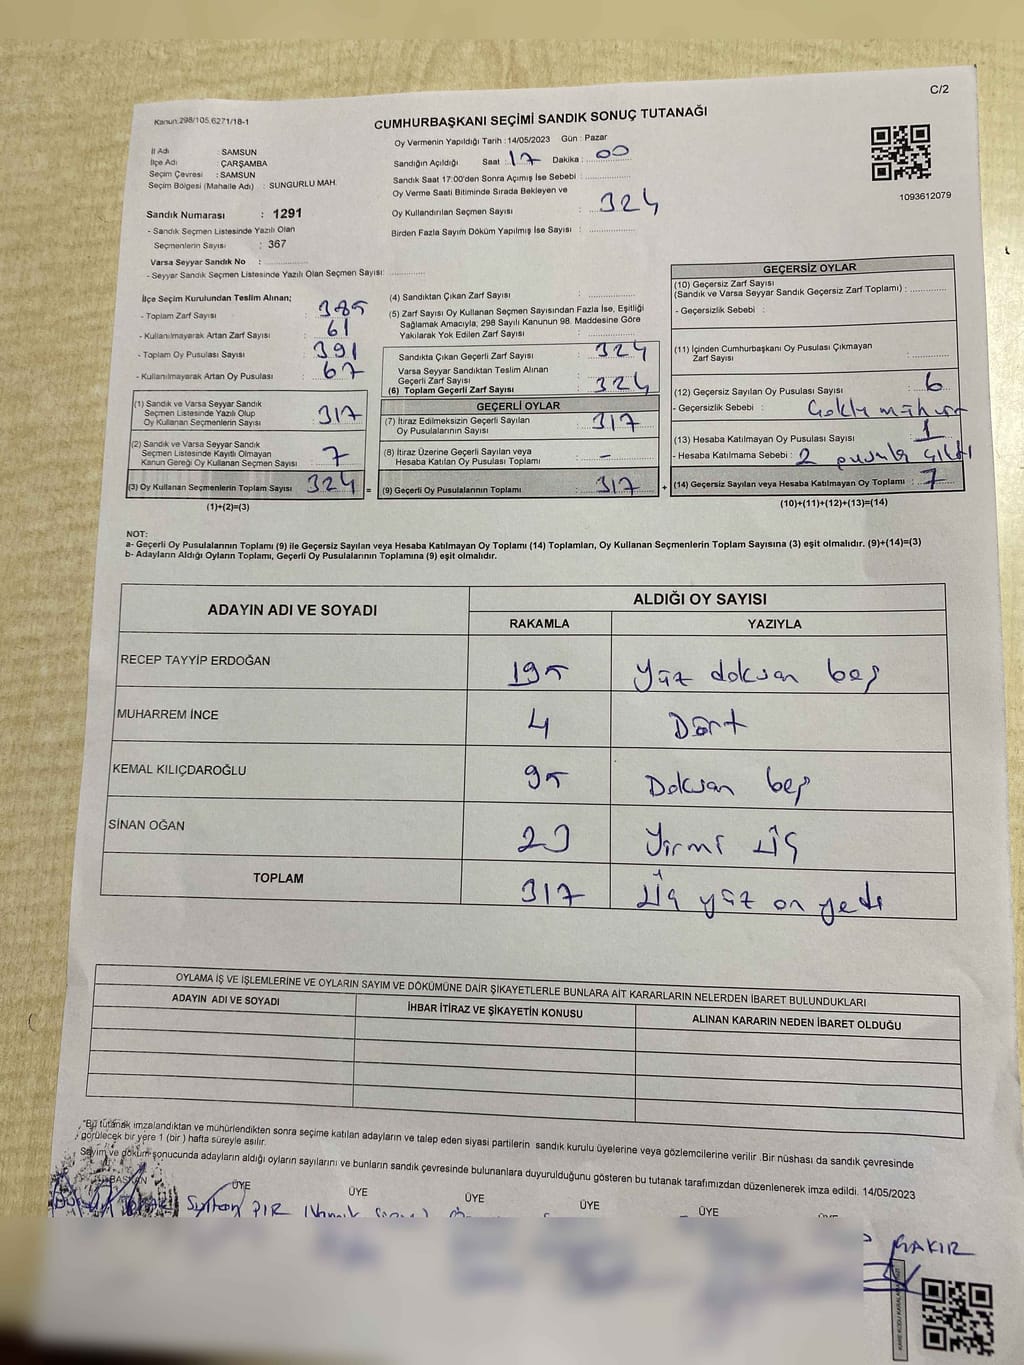 C/2
Kanun:298/105,6271/18-1
CUMHURBAŞKANI SEÇİMİ SANDIK SONUÇ TUTANAĞI
İl Adı : SAMSUN
İlçe Adı : ÇARŞAMBA
Seçim Çevresi : SAMSUN
Seçim Bölgesi (Mahalle Adı) : SUNGURLU MAH.
Sandık Numarası : 1291
- Sandık Seçmen Listesinde Yazılı Olan
Seçmenlerin Sayısı : 367
Varsa Seyyar Sandık No :
- Seyyar Sandık Seçmen Listesinde Yazılı Olan Seçmen Sayısı:
Oy Vermenin Yapıldığı Tarih : 14/05/2023 Gün : Pazar
Sandığın Açıldığı Saat : 17 Dakika : 00
Sandık Saat 17:00'den Sonra Açımış İse Sebebi :
Oy Verme Saati Bitiminde Sırada Bekleyen ve
Oy Kullandırılan Seçmen Sayısı : 324
Birden Fazla Sayım Döküm Yapılmış İse Sayısı :
1093612079
İlçe Seçim Kurulundan Teslim Alınan;
- Toplam Zarf Sayısı : 385
- Kullanılmayarak Artan Zarf Sayısı : 61
- Toplam Oy Pusulası Sayısı : 391
- Kullanılmayarak Artan Oy Pusulası : 67
(1) Sandık ve Varsa Seyyar Sandık
Seçmen Listesinde Yazılı Olup
Oy Kullanan Seçmenlerin Sayısı : 317
(2) Sandık ve Varsa Seyyar Sandık
Seçmen Listesinde Kayıtlı Olmayan
Kanun Gereği Oy Kullanan Seçmen Sayısı : 7
(3) Oy Kullanan Seçmenlerin Toplam Sayısı : 324 =
(1)+(2)=(3)
(4) Sandıktan Çıkan Zarf Sayısı :
(5) Zarf Sayısı Oy Kullanan Seçmen Sayısından Fazla İse, Eşitliği
Sağlamak Amacıyla, 298 Sayılı Kanunun 98. Maddesine Göre
Yakılarak Yok Edilen Zarf Sayısı :
Sandıkta Çıkan Geçerli Zarf Sayısı : 324
Varsa Seyyar Sandıktan Teslim Alınan
Geçerli Zarf Sayısı :
(6) Toplam Geçerli Zarf Sayısı : 324
GEÇERLİ OYLAR
(7) İtiraz Edilmeksizin Geçerli Sayılan
Oy Pusulalarının Sayısı : 317
(8) İtiraz Üzerine Geçerli Sayılan veya
Hesaba Katılan Oy Pusulası Toplamı : -
(9) Geçerli Oy Pusulalarının Toplamı : 317 +
GEÇERSİZ OYLAR
(10) Geçersiz Zarf Sayısı
(Sandık ve Varsa Seyyar Sandık Geçersiz Zarf Toplamı) :
- Geçersizlik Sebebi :
(11) İçinden Cumhurbaşkanı Oy Pusulası Çıkmayan
Zarf Sayısı :
(12) Geçersiz Sayılan Oy Pusulası Sayısı : 6
- Geçersizlik Sebebi : Çoklu mühür
(13) Hesaba Katılmayan Oy Pusulası Sayısı : 1
- Hesaba Katılmama Sebebi : 2 pusula çıktı
(14) Geçersiz Sayılan veya Hesaba Katılmayan Oy Toplamı : 7
(10)+(11)+(12)+(13)=(14)
NOT:
a- Geçerli Oy Pusulalarının Toplamı (9) ile Geçersiz Sayılan veya Hesaba Katılmayan Oy Toplamı (14) Toplamları, Oy Kullanan Seçmenlerin Toplam Sayısına (3) eşit olmalıdır. (9)+(14)=(3)
b- Adayların Aldığı Oyların Toplamı, Geçerli Oy Pusulalarının Toplamına (9) eşit olmalıdır.
ADAYIN ADI VE SOYADI
ALDIĞI OY SAYISI
RAKAMLA YAZIYLA
RECEP TAYYİP ERDOĞAN 195 Yüz doksan beş
MUHARREM İNCE 4 Dört
KEMAL KILIÇDAROĞLU 95 Doksan beş
SİNAN OĞAN 23 Yirmi üç
TOPLAM 317 Üç yüz on yedi
OYLAMA İŞ VE İŞLEMLERİNE VE OYLARIN SAYIM VE DÖKÜMÜNE DAİR ŞİKAYETLERLE BUNLARA AİT KARARLARIN NELERDEN İBARET BULUNDUKLARI
ADAYIN ADI VE SOYADI İHBAR İTİRAZ VE ŞİKAYETİN KONUSU ALINAN KARARIN NEDEN İBARET OLDUĞU
"Bu tutanak imzalandıktan ve mühürlendikten sonra seçime katılan adayların ve talep eden siyasi partilerin sandık kurulu üyelerine veya gözlemcilerine verilir .Bir nüshası da sandık çevresinde
görülecek bir yere 1 (bir ) hafta süreyle asılır.
Sayım ve döküm sonucunda adayların aldığı oyların sayılarını ve bunların sandık çevresinde bulunanlara duyurulduğunu gösteren bu tutanak tarafımızdan düzenlenerek imza edildi. 14/05/2023
BAŞKAN ÜYE ÜYE ÜYE ÜYE ÜYE
PIR